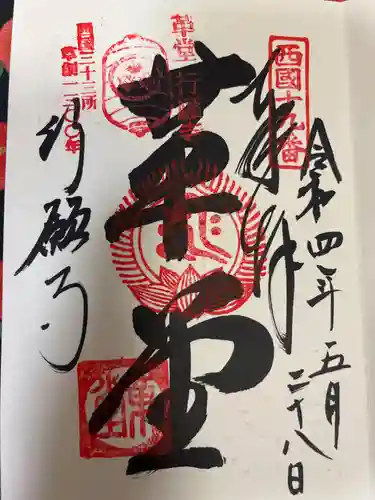 西國十九番
奉拝
令和四年五月二十八日
革堂
革堂
行願寺
西国三十三所
草創一三〇〇年
行願寺